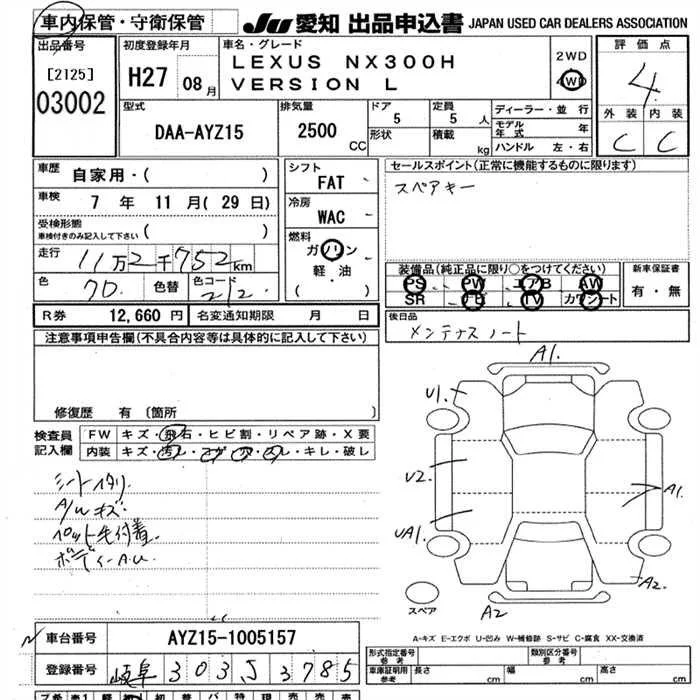 車内保管・守衛保管
JU 愛知 出品申込書 JAPAN USED CAR DEALERS ASSOCIATION
出品番号
[2125]
03002
初度登録年月
H27 08月
車名・グレード
LEXUS NX300H
VERSION L
2WD
4WD
評価点
4
外装 内装
C C
型式
DAA-AYZ15
排気量
2500 CC
ドア 5
形状
定員 5 人
積載 kg
ディーラー・並行
モデル年式 年
ハンドル 左・右
車歴 自家用・( )
車検 7 年 11 月 ( 29 日)
受検形態
車検付きのみ記入して下さい ( )
走行 11万2千752km
色 70. 色替 色コード 212
シフト
FAT
冷房
WAC
燃料
ガソリン
軽・油
( )
セールスポイント(正常に機能するものに限ります)
スペアキー
装備品(純正品に限り○をつけてください)
PS PW エアB AW
SR ナビ TV カワシート
新車保証書
有・無
R券 12,660円 名変通知期限 月 日
後日品
メンテナスノート
注意事項申告欄(不具合内容等は具体的に記入して下さい)
修復歴 有 〔箇所
検査員記入欄
FW キズ・飛石・ヒビ割・リペア跡・X要
内装 キズ・汚レ・コゲ・穴・スレ・キレ・破レ
シートイタリ
A/Wキズ
ペット毛付着
ボディーA.U.
A1.
U1.
U2.
UA1
A1.
A2.
A2
スペア
A-キズ E-エクボ U-凹み W-補修跡 S-サビ C-腐食 XX-交換済
車台番号 AYZ15-1005157
登録番号 岐阜 303 J 3785
形式指定番号 参考
類別区分番号 参考
車庫証明用 参考 長さ cm 幅 cm 高さ cm